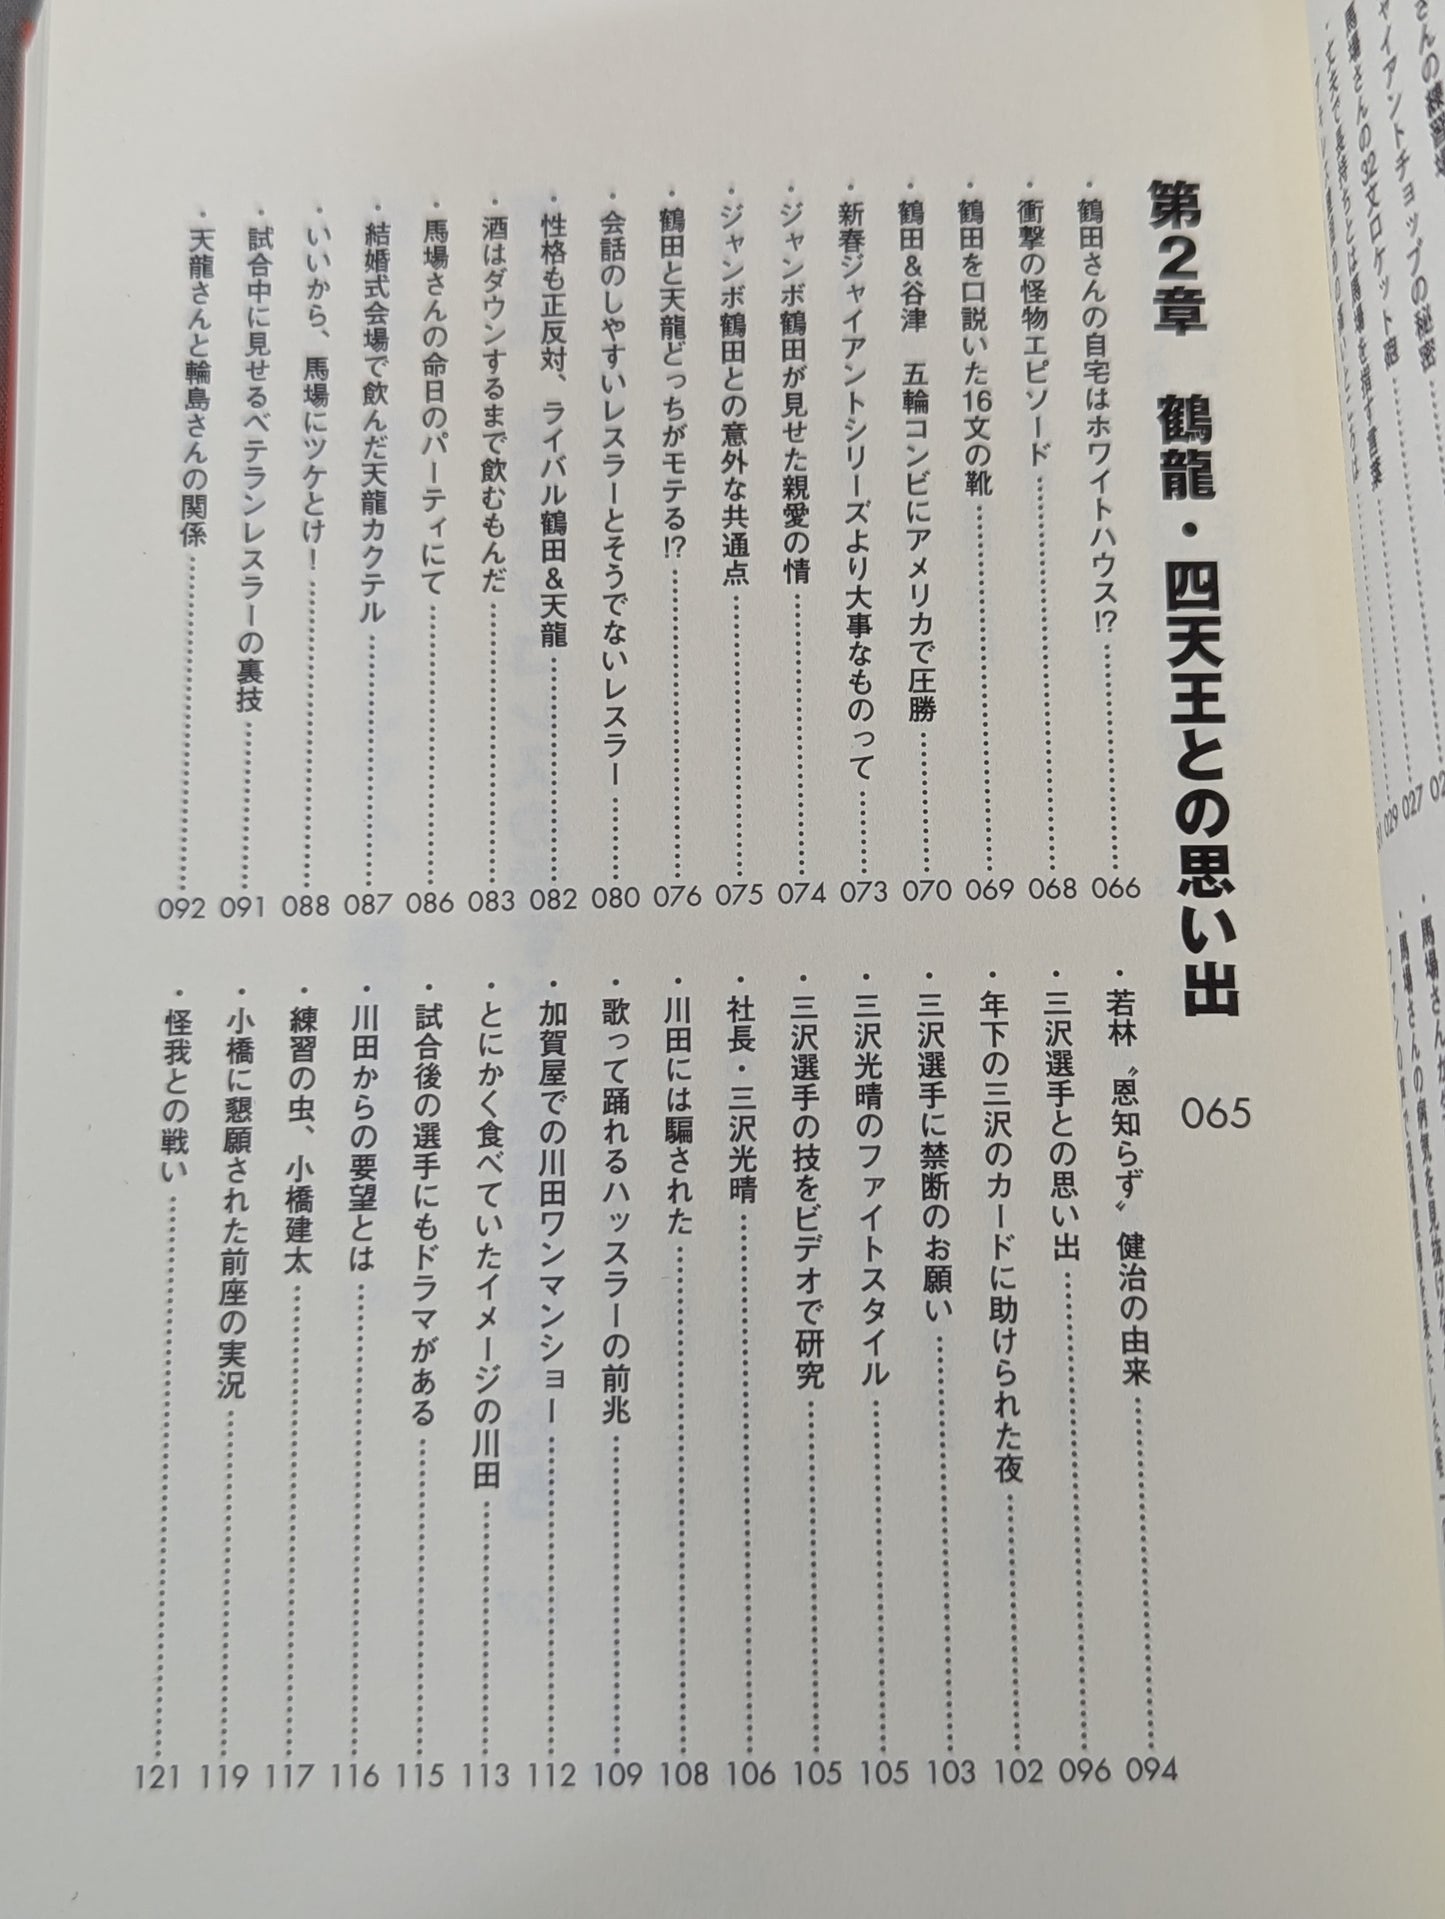 第2章　鶴龍・四天王との思い出　065
・鶴田さんの自宅はホワイトハウス!?……066
・衝撃の怪物エピソード……068
・鶴田を口説いた16文の靴……069
・鶴田＆谷津　五輪コンビにアメリカで圧勝……070
・新春ジャイアントシリーズより大事なものって……073
・ジャンボ鶴田が見せた親愛の情……074
・ジャンボ鶴田との意外な共通点……075
・鶴田と天龍どっちがモテる!?……076
・会話のしやすいレスラーとそうでないレスラー……080
・性格も正反対、ライバル鶴田＆天龍……082
・酒はダウンするまで飲むもんだ……083
・馬場さんの命日のパーティにて……086
・結婚式会場で飲んだ天龍カクテル……087
・いいから、馬場にツケとけ！……088
・試合中に見せるベテランレスラーの裏技……091
・天龍さんと輪島さんの関係……092
・若林〝恩知らず〟健治の由来……094
・三沢選手との思い出……096
・年下の三沢のカードに助けられた夜……102
・三沢選手に禁断のお願い……103
・三沢光晴のファイトスタイル……105
・三沢選手の技をビデオで研究……105
・社長・三沢光晴……106
・川田には騙された……108
・歌って踊れるハッスラーの前兆……109
・加賀屋での川田ワンマンショー……112
・とにかく食べていたイメージの川田……113
・試合後の選手にもドラマがある……115
・川田からの要望とは……116
・練習の虫、小橋建太……117
・小橋に懇願された前座の実況……119
・怪我との戦い……121
さんの練習場
ャイアントチョップの秘密
馬場さんの32文ロケット砲……027
029